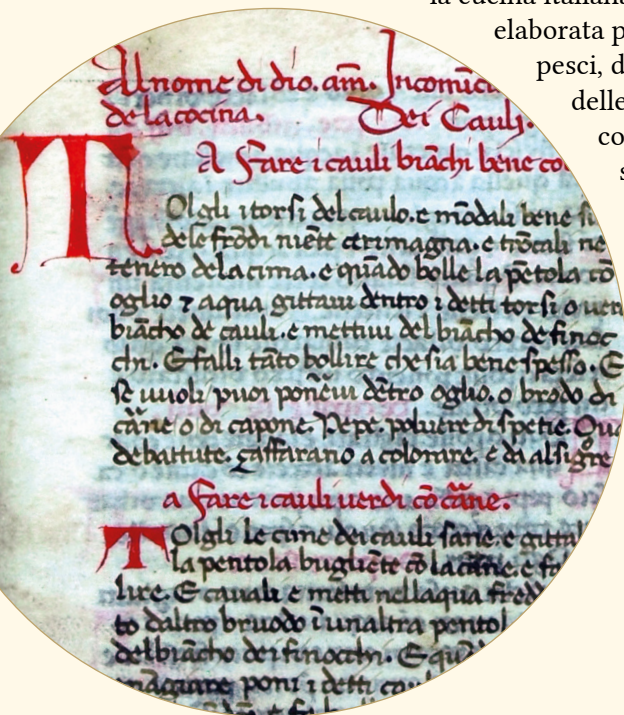 la cucina italiana
elaborata p
pesci, d
delle
co
s
Al nome di dio. am̄. Incomīc
de la cocina. Dei Cauli.
A Fare i cauli biāchi bene co
TOlgli i torsi del caulo. e mōdali bene si
de le frōdi niēte ce rimagna. e trōcali ne
tenero de la cima. e quādo bolle la pētola cō
oglio ⁊ aqua gittavi dentro i detti torsi o uer
biācho de cauli. e mettiui del biācho de finoc
chi. E falli tāto bollire che sia bene spesso. E
se uuoli puoi ponēui dētro oglio. o brodo di
carne o di capone. Pepe. poluere di spetie. Oua
debattute. çaffarano a colorare. e da al signore
a Fare i cauli uerdi cō carne.
TOlgli le cime dei cauli sane. e gittal
la pentola bugliēte cō la carne. e fa
lire. E cauali e metti nellaqua fredd
to daltro bruodo ī unaltra pentol
del biācho dei finocchi. E quād
magiare poni i detti cau